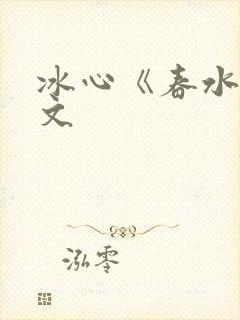 冰心《春水
文
泓零